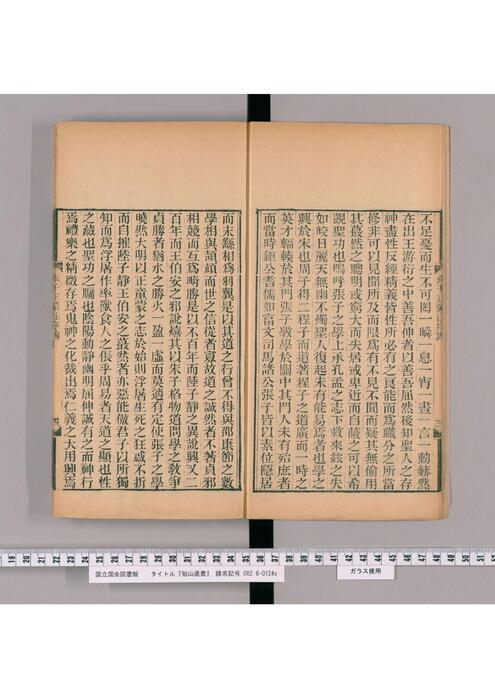 不足憂而生不可罔一瞬一息一宵一晝一言一動赫然
在出王游衍之中善吾伸者以善吾屈然後知聖人之存
神盡性反經精義皆性所必有之良能而爲職分之所當
修非可以見聞所及而限爲有不見不聞而疑其無偷用
其蕞然之聰明或窮大而失居或卑近而自蔽之可以希
覬聖功也嗚呼張子之學上承孔孟之志下救來茲之失
如皎日麗天無幽不燭聖人復起未有能易焉者也學之
興於宋也周子得二程子而道著程子之道廣而一時之
英才輻輳於其門張子斆學於關中其門人未有殆庶者
而當時鉅公耆儒如富文司馬諸公張子皆以素位隱居
而末繇相爲羽翼是以其道之行曾不得與邵康節之數
學相與頡頏而世之信從者寡故道之誠然者不著貞邪
相競而互爲畸勝是以不百年而陸子靜之異說興又二
百年而王伯安之邪說熺其以朱子格物道問學之敎爭
貞勝者猶水之勝火一盈一虛而莫適有定使張子之學
曉然大明以正童蒙之志於始則浮屠生死之狂惑不折
而自摧陸子靜王伯安之蕞然者亦惡能傲君子以所獨
知而爲浮屠作率獸食人之倀乎周易者天道之顯也性
之藏也聖功之牖也陰陽動靜幽明屈伸誠有之而神行
焉禮樂之精微存焉鬼神之化裁出焉仁義之大用興焉
19 20 21 22 23 24 25 26 27 28 29 30 31 32 33 34 35 36 37 38 39 40 41 42 43 44 45 46 47 48 49 50 51 52 53
国立国会図書館 タイトル『船山遺書』 請求記号 082.6-O124s
ガラス使用